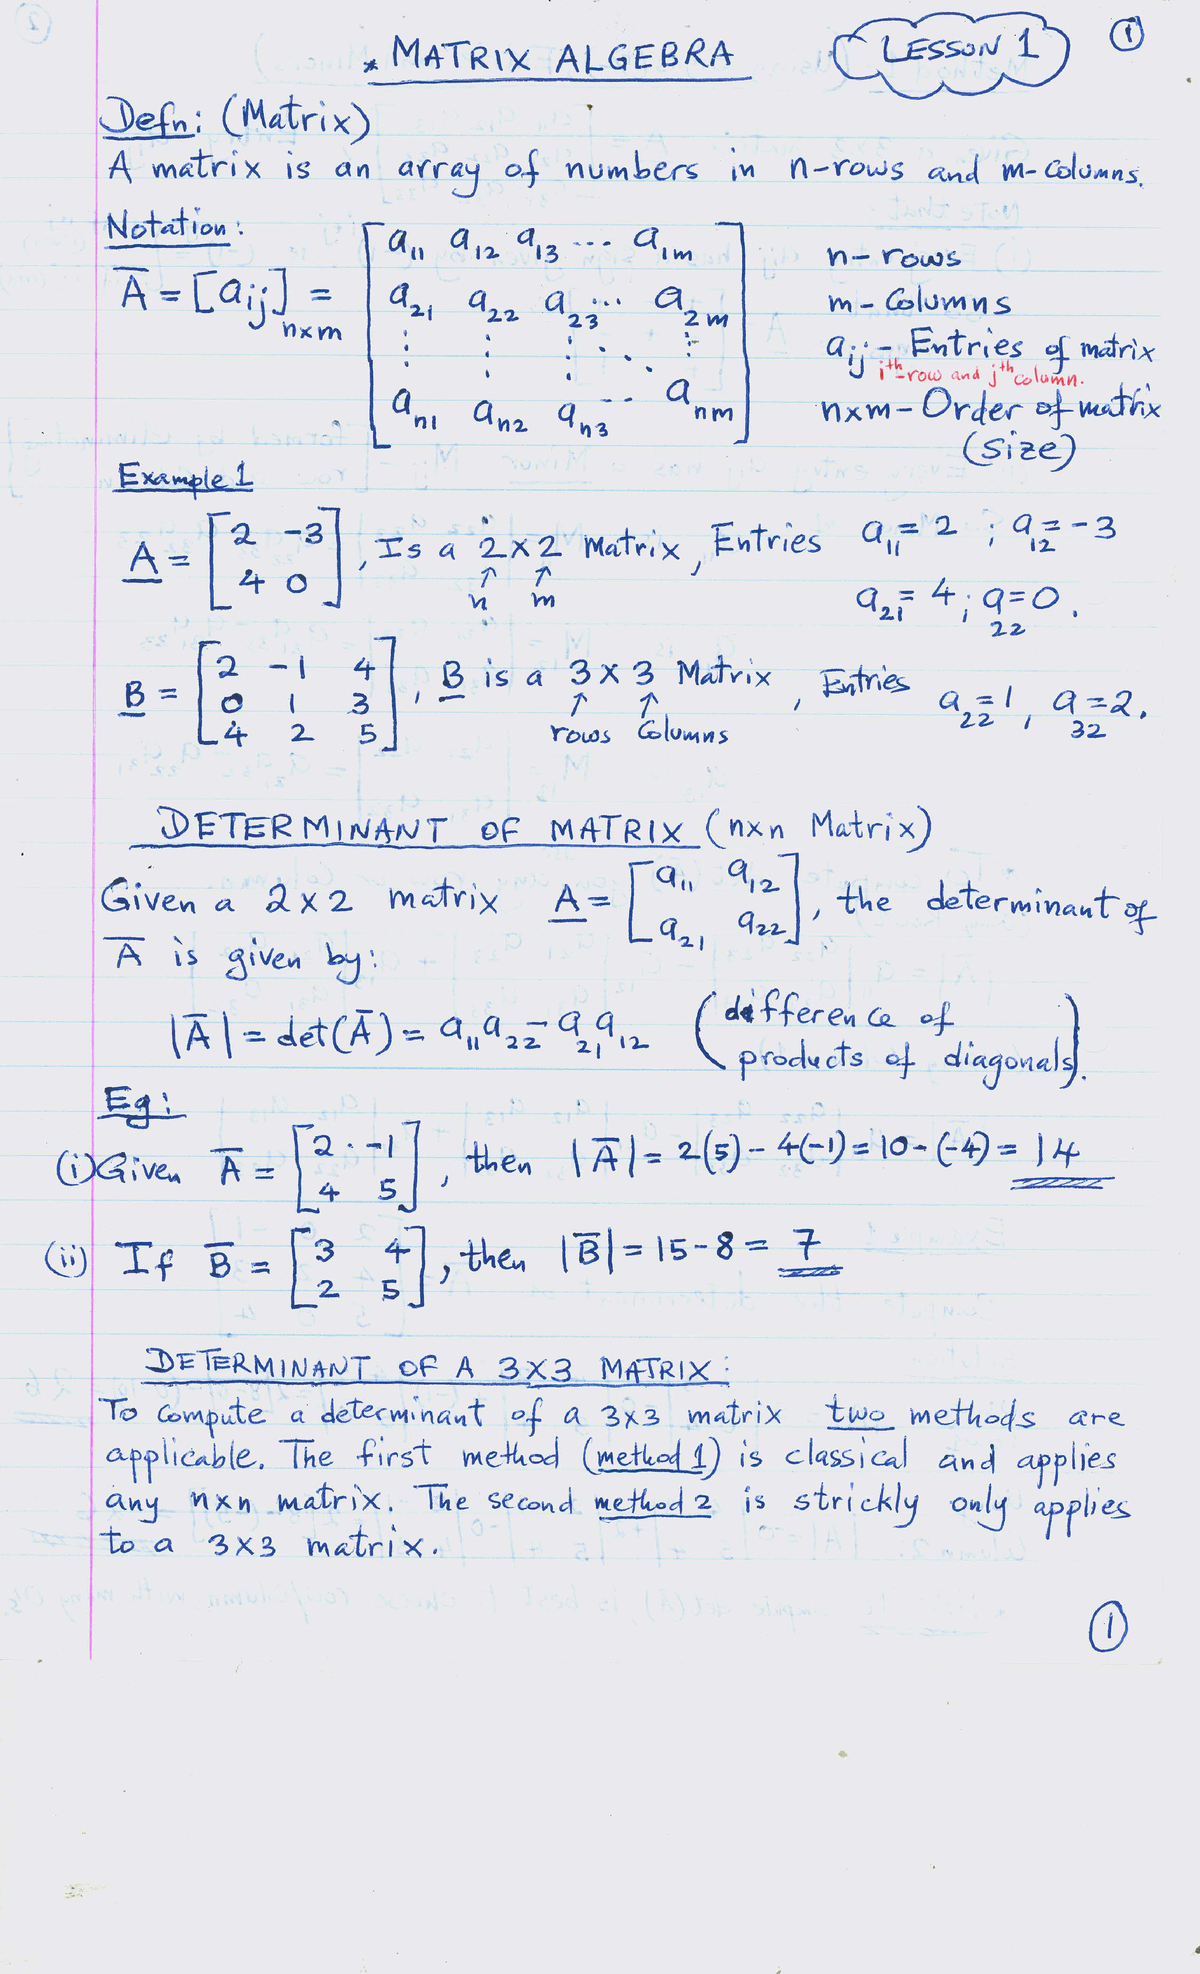 * MATRIX ALGEBRA
LESSON 1
1
Defn: (Matrix)
A matrix is an array of numbers in n-rows and m-columns.
Notation:
Ā = [aij]n×m = [a11 a12 a13 ... a1m
a21 a22 a23 ... a2m
⋮ ⋮ ⋮ ⋱ ⋮
an1 an2 an3 ... anm]
n - rows
m - Columns
aij - Entries of matrix
ith-row and jth column.
n×m - Order of matrix
(size)
Example 1
A = [2 -3
4 0], Is a 2×2 Matrix, Entries a11 = 2 ; a12 = -3
↑ ↑
n m
a21 = 4; a22 = 0.
B = [2 -1 4
0 1 3
4 2 5], B is a 3×3 Matrix, Entries a22 = 1, a32 = 2.
↑ ↑
rows Columns
DETERMINANT OF MATRIX (n×n Matrix)
Given a 2×2 matrix A = [a11 a12
a21 a22], the determinant of
Ā is given by:
|Ā| = det(Ā) = a11a22 - a21a12 (difference of
products of diagonals).
Eg:
(i) Given Ā = [2 -1
4 5], then |Ā| = 2(5) - 4(-1) = 10 - (-4) = 14
(ii) If B̄ = [3 4
2 5], then |B̄| = 15 - 8 = 7
DETERMINANT OF A 3×3 MATRIX:
To compute a determinant of a 3×3 matrix two methods are
applicable. The first method (method 1) is classical and applies
any n×n matrix. The second method 2 is strickly only applies
to a 3×3 matrix.
1